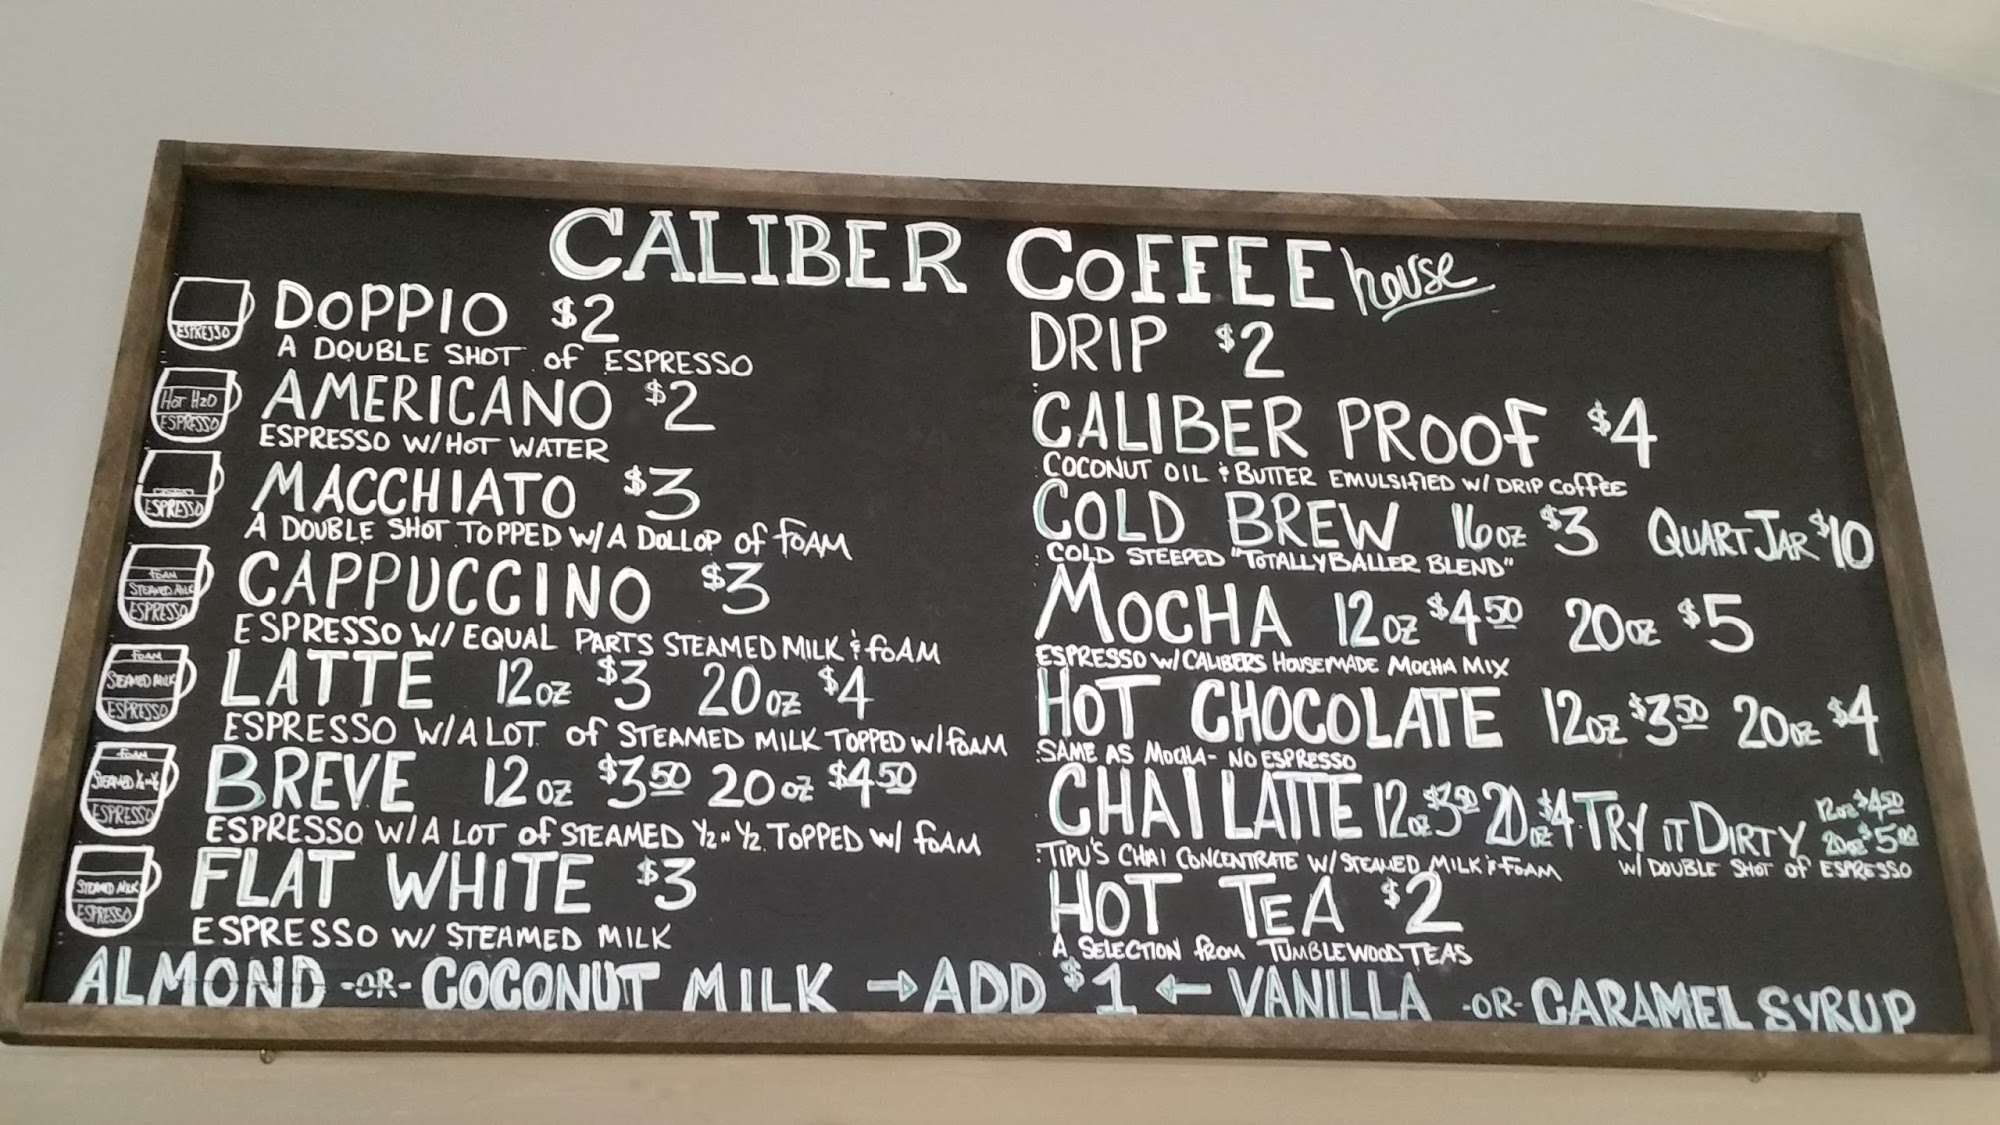 CALIBER COFFEE house
ESPRESSO
DOPPIO $2
A DOUBLE SHOT of ESPRESSO
HOT H2O
ESPRESSO
AMERICANO $2
ESPRESSO W/HOT WATER
ESPRESSO
MACCHIATO $3
A DOUBLE SHOT TOPPED W/A DOLLOP of FOAM
FOAM
STEAMED MILK
ESPRESSO
CAPPUCCINO $3
ESPRESSO W/EQUAL PARTS STEAMED MILK & FOAM
FOAM
STEAMED MILK
ESPRESSO
LATTE 12oz $3 20oz $4
ESPRESSO W/A LOT of STEAMED MILK TOPPED W/ FOAM
FOAM
STEAMED ½ n ½
ESPRESSO
BREVE 12oz $3.50 20oz $4.50
ESPRESSO W/A LOT of STEAMED ½ N ½ TOPPED W/ FOAM
STEAMED MILK
ESPRESSO
FLAT WHITE $3
ESPRESSO W/ STEAMED MILK
DRIP $2
CALIBER PROOF $4
COCONUT OIL & BUTTER EMULSIFIED W/ DRIP COFFEE
COLD BREW 16oz $3 QUART JAR $10
COLD STEEPED "TOTALLY BALLER BLEND"
MOCHA 12oz $4.50 20oz $5
ESPRESSO W/CALIBERS HOUSEMADE MOCHA MIX
HOT CHOCOLATE 12oz $3.50 20oz $4
SAME AS MOCHA - NO ESPRESSO
CHAI LATTE 12oz $3.50 20oz $4 TRY IT DIRTY 12oz $4.50
20oz $5.00
TIPU'S CHAI CONCENTRATE W/ STEAMED MILK & FOAM W/ DOUBLE SHOT of ESPRESSO
HOT TEA $2
A SELECTION from TUMBLEWOOD TEAS
ALMOND -OR- COCONUT MILK → ADD $1 ← VANILLA -OR- CARAMEL SYRUP